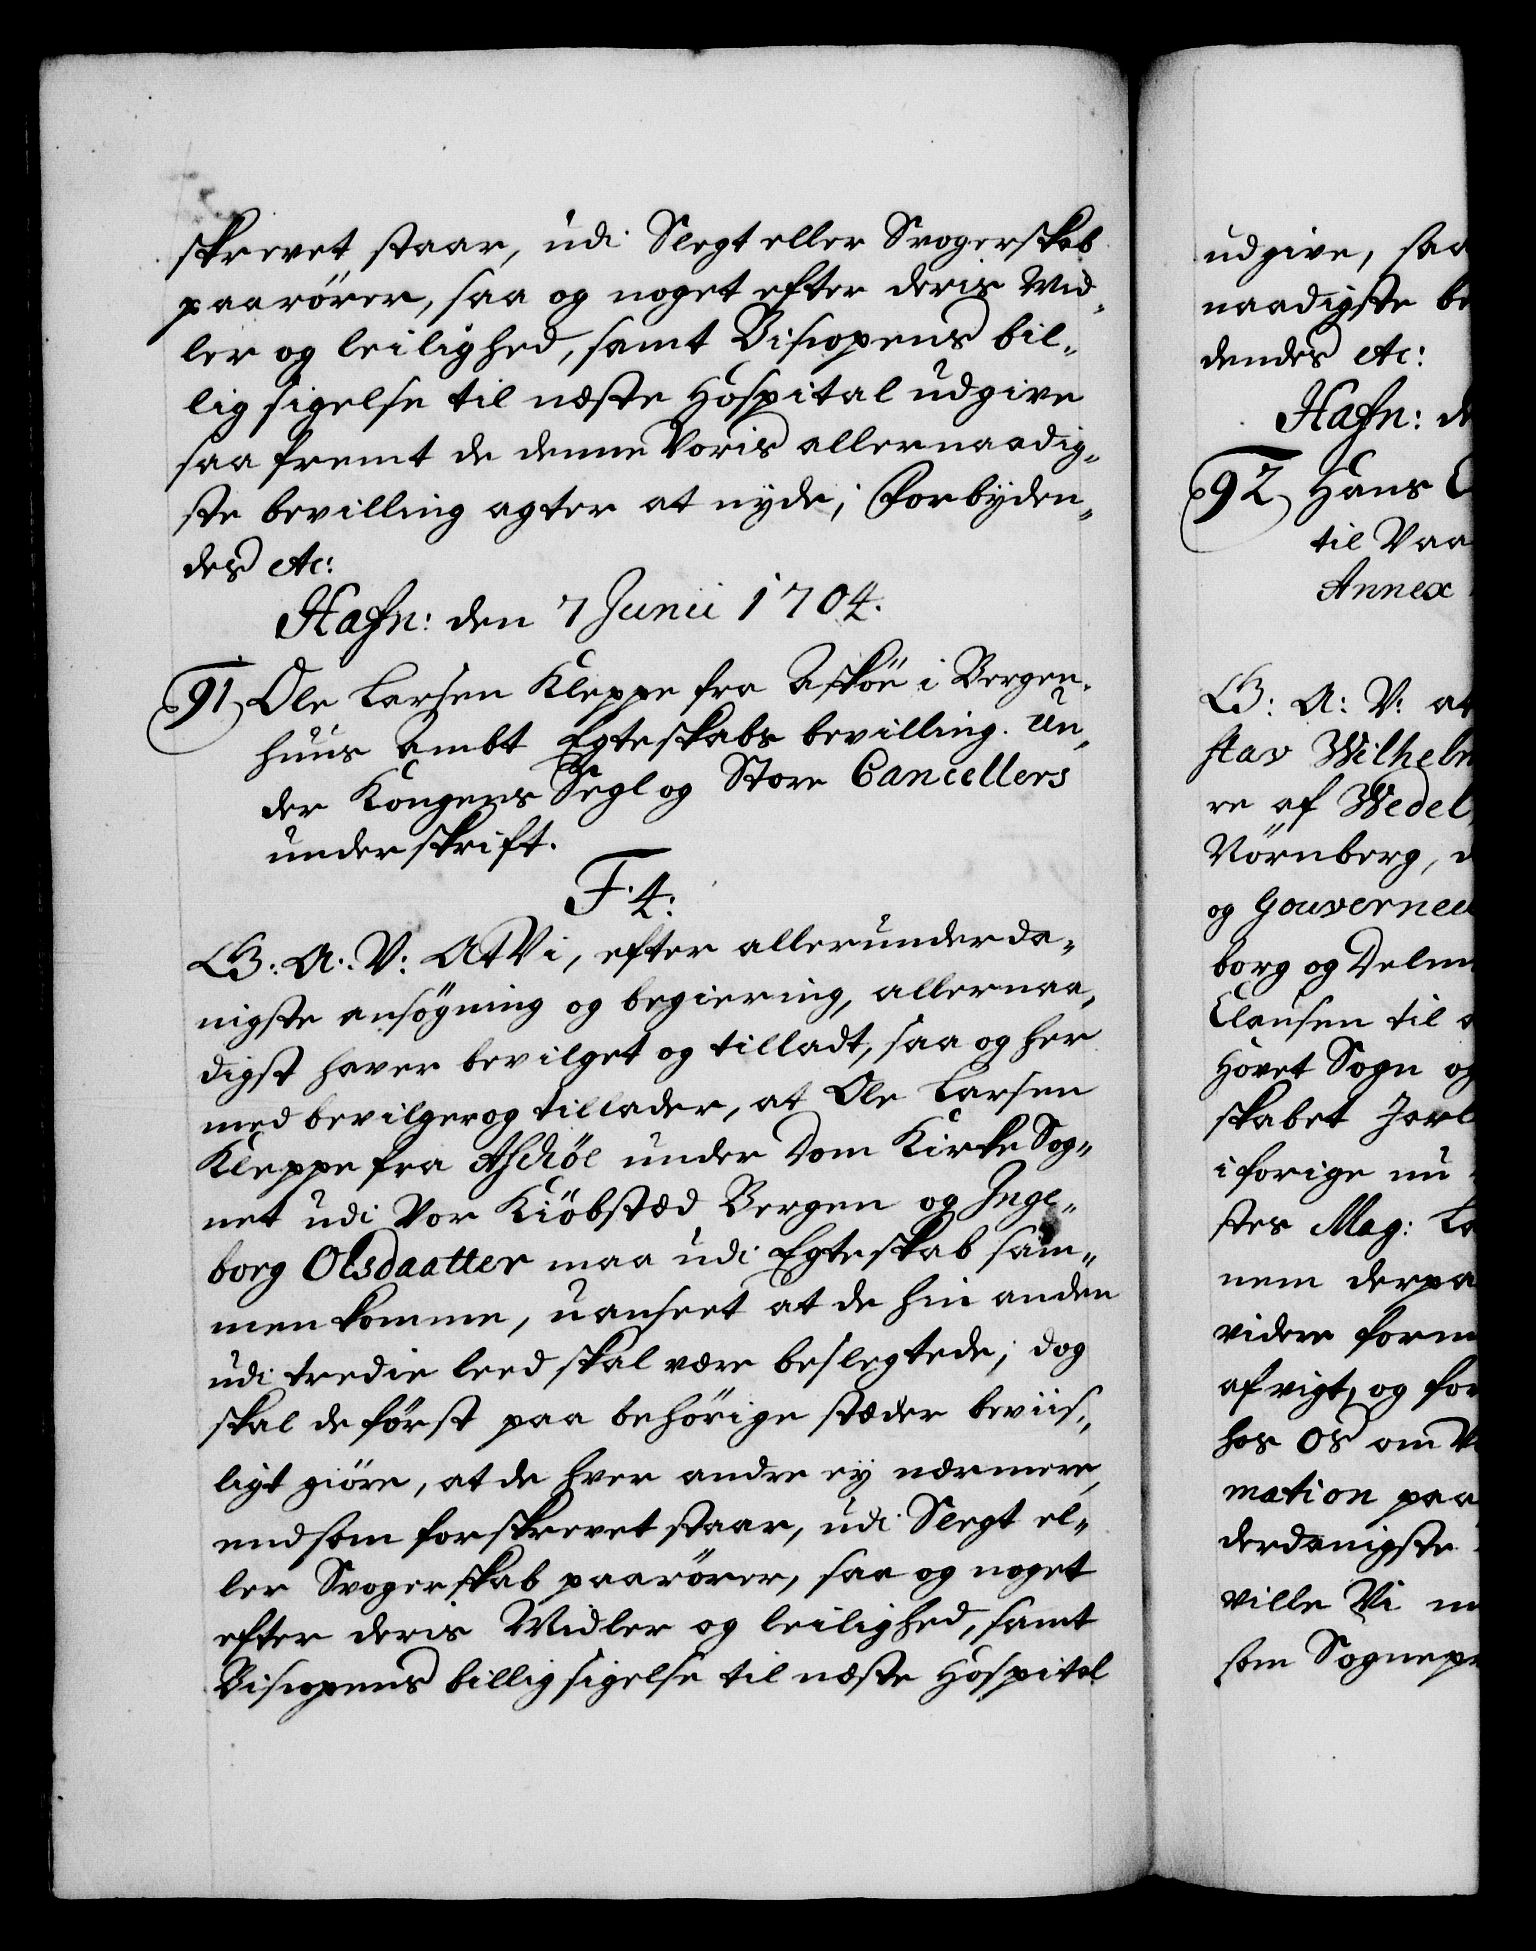 skrevet staar, udi Slegt eller Svogerskab
paarører, saa og noget efter deris Mid„
ler og leilighed, samt Biscopens bil„
lig sigelse til næste Hospital udgive
saa fremt de denne Voris allernaadig„
ste bevilling agter at nyde; Forbyden„
des etc:
Hafn: den 7 Junii 1704.
91 Ole Larsen Kleppe fra Askøe i Bergen„
huus Ambt Egteskabs bevilling. Un„
der Kongens Segl og Store Cancellers
underskrift.
F. 4:
G: A: V: At Vi, efter allerunderda„
nigste ansøgning og begiering, allernaa„
digst haver bevilget og tilladt, saa og her
med bevilger og tillader, at Ole Larsen
Kleppe fra Aschöe under Dom Kirke Sog„
net udi Vor Kiöbstæd Bergen og Inge„
borg Olsdaatter maa udi Egteskab sam„
men komme, uanseet at de hin anden
udi tredie leed skal være beslegtede; dog
skal de først paa behörige stæder beviis„
ligt giöre, at de hver andre ey nærmere,
end som forskrevet staar, udi Slegt el„
ler Svogerskab paarører, saa og noget
efter deris Midler og leilighed, samt
Biscopens billig sigelse til næste Hospital
udgive, saa
naadigste be
dendes etc:
Hafn: de
92 Hans
til Vaa
Annex
G: A: V: at
stav Wilhelm
re af Wedel
Nörnberg,
og Gouverneu
borg og Delm
Clausen til
Hovet Sogn og
skabet Jarl
i forige nu
stes Mag: La
nem derpa
videre form
afvigt, og for
hos Os om V
mation paa
derdanigste
ville Vi
som Sognepr